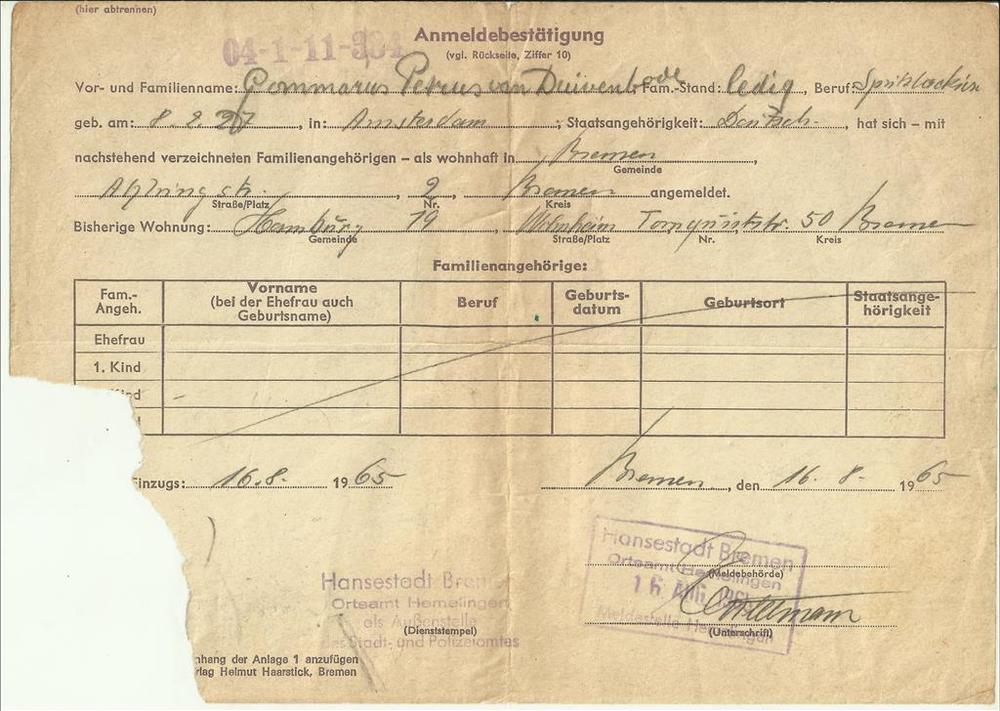 (hier abtrennen)
04-1-11-
Anmeldebestätigung
(vgl. Rückseite, Ziffer 10)
Vor- und Familienname: Gommarus Petrus van Duivenbode, Fam.-Stand: ledig, Beruf:
geb. am: 8.2.27, in: Amsterdam, Staatsangehörigkeit: Deutsch-, hat sich – mit
nachstehend verzeichneten Familienangehörigen – als wohnhaft in Bremen,
Gemeinde
2, Bremen angemeldet.
Straße/Platz Nr. Kreis
Bisherige Wohnung: Hamburg 19, Wohnheim Tornquiststr. 50 Bremen
Gemeinde Straße/Platz Nr. Kreis
Familienangehörige:
Fam.-Angeh. Vorname (bei der Ehefrau auch Geburtsname) Beruf Geburtsdatum Geburtsort Staatsangehörigkeit
Ehefrau
1. Kind
Einzugs: 16.8. 1965 Bremen, den 16. 8. 1965
Hansestadt Bremen
Ortsamt Hemelingen
16. AUG. 1965
Meldestelle Hemelingen
(Meldebehörde)
(Unterschrift)
Hansestadt Bremen
Ortsamt Hemelingen
als Außenstelle
(Dienststempel)
Stadt- und Polizeiamtes
Anlage 1 anzufügen
Helmut Haarstick, Bremen